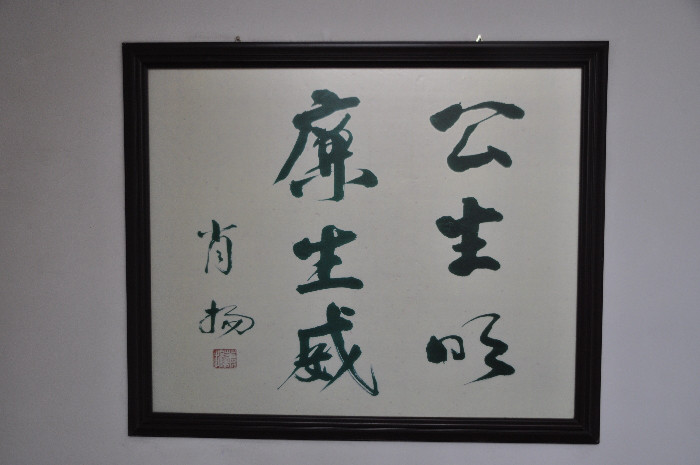 公生明
廉生威
肖扬